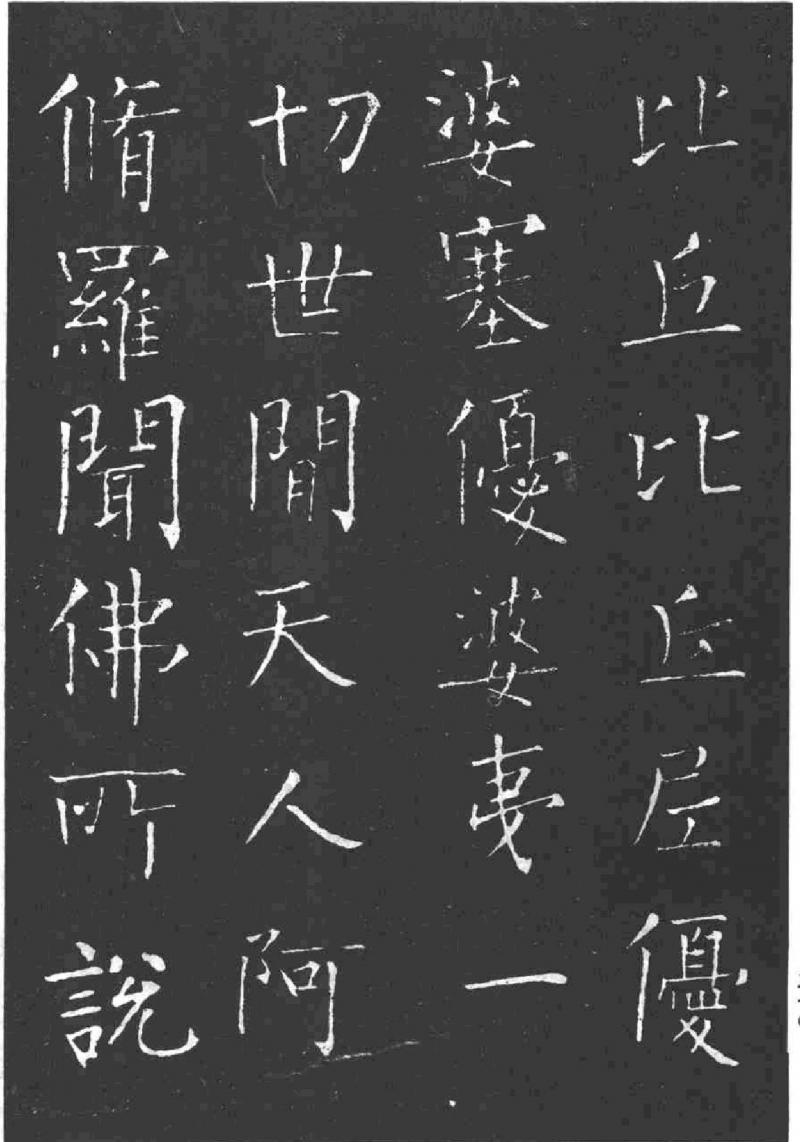 比丘比丘尼優
婆塞優婆夷一
切世間天人阿
脩羅聞佛所說